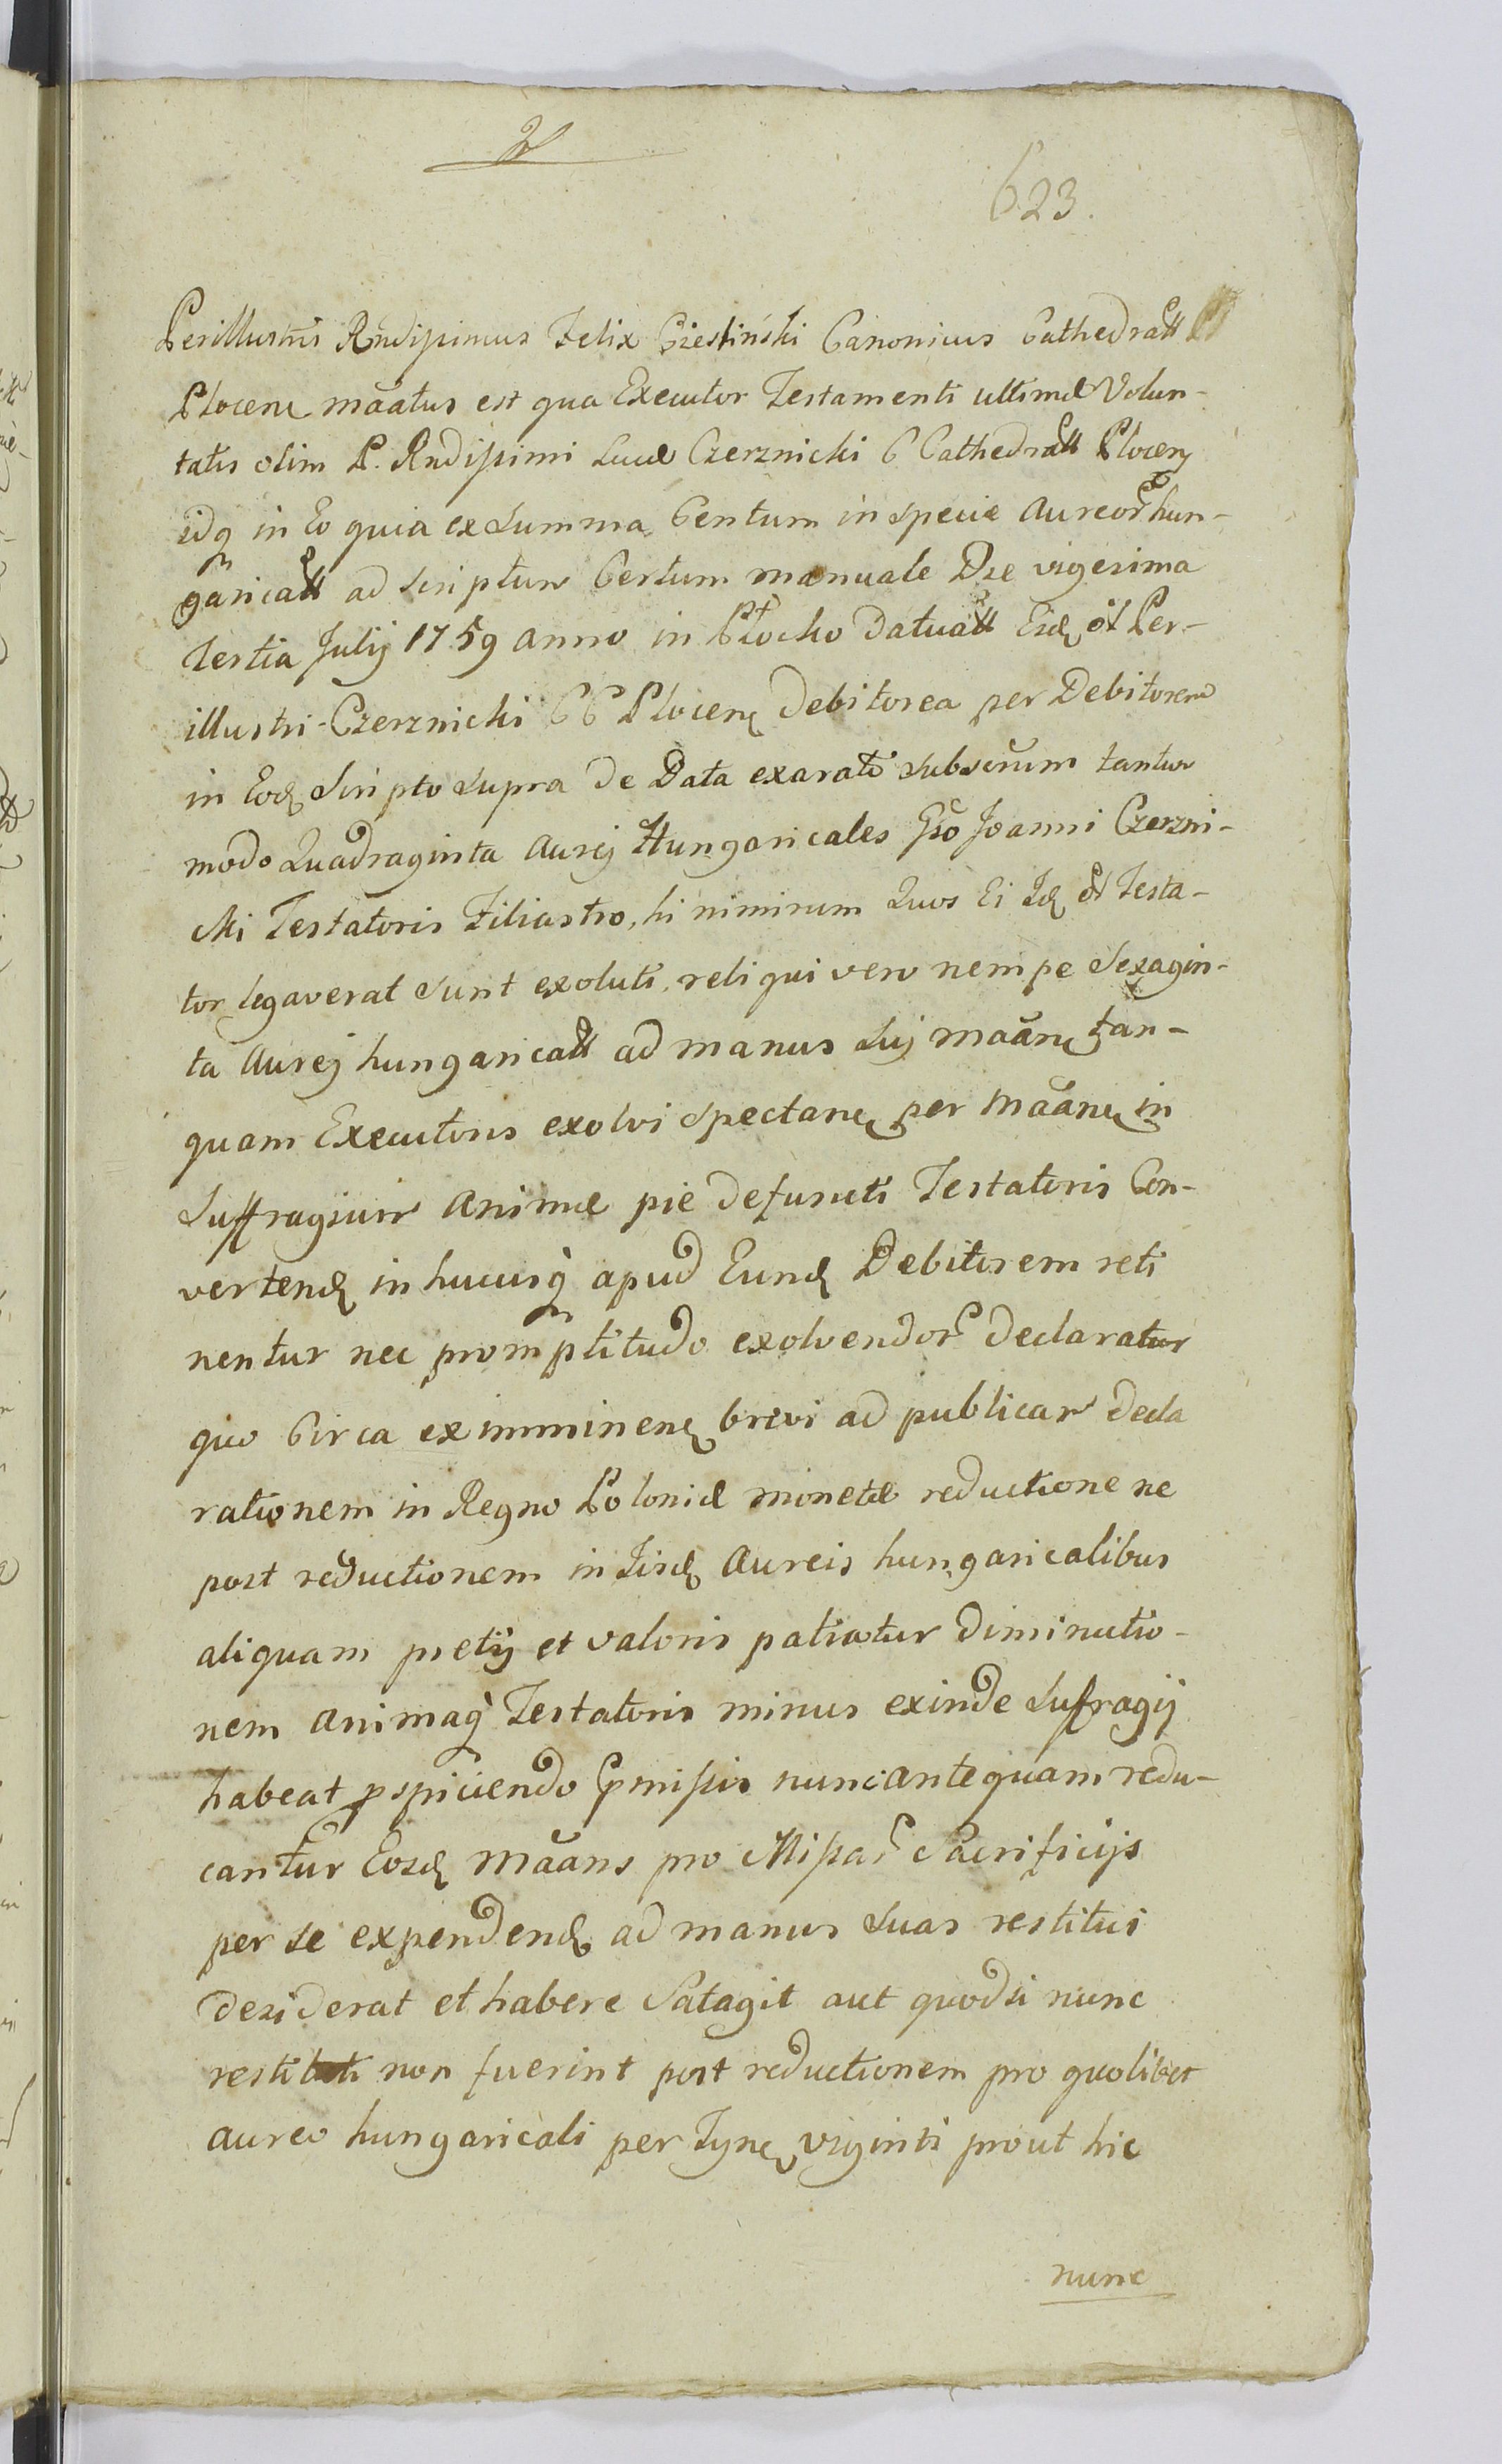 623.
Perillustris Rndissimus Felix Cieśliński Canonicus Cathedrall
Plocen maatus est qua Executor Testamenti ultimæ Volun-
tatis olim P. Rndissimi Lucæ Czerznicki C Cathedrall Plocen
idq in Eo quia ex Summa Centum in specie Aureor hun-
garicall ad scriptum Certum manuale Die vigesima
tertia Julij 1759 anno in Płocko Datuall Eid ol Per-
illustri Czerznicki CC Plocen debitorea per Debitorem
in Eod Scripto Supra de Data exarato subscrum tantum
modo Quadraginta Aurej Hungaricales Gso Joanni Czerzni-
cki Testatoris Filiastro, hi nimirum Quos Ei Id ol Testa-
tor legaverat sunt exoluti, reliqui vero nempe Sexagin-
ta Aurej hungaricall ad manus Sui maan tan-
quam Executoris exolvi spectan per maan in
Suffragium Animæ pie defuncti Testatoris Con-
vertend in hucusq apud Eund Debitorem reti
nentur nec promptitudo exolvendor declaratur
quo Circa ex imminen brevi ad publicam decla
rationem in Regno Poloniæ monetæ reductione ne
post reductionem in Iisd Aureis hungaricalibus
aliquam pretij et valoris patiatur diminutio-
nem animaq Testatoris minus exinde Sufragij
habeat pspiciendo Pmissis nunc antequam redu-
cantur Eosd Maans pro Missar Sacrificijs
per se expendend ad manus Suas restitui
desiderat et habere Satagit aut quodsi nunc
restituti non fuerint post reductionem pro quolibet
aureo hungaricali per Tyn viginti prout hic
nunc